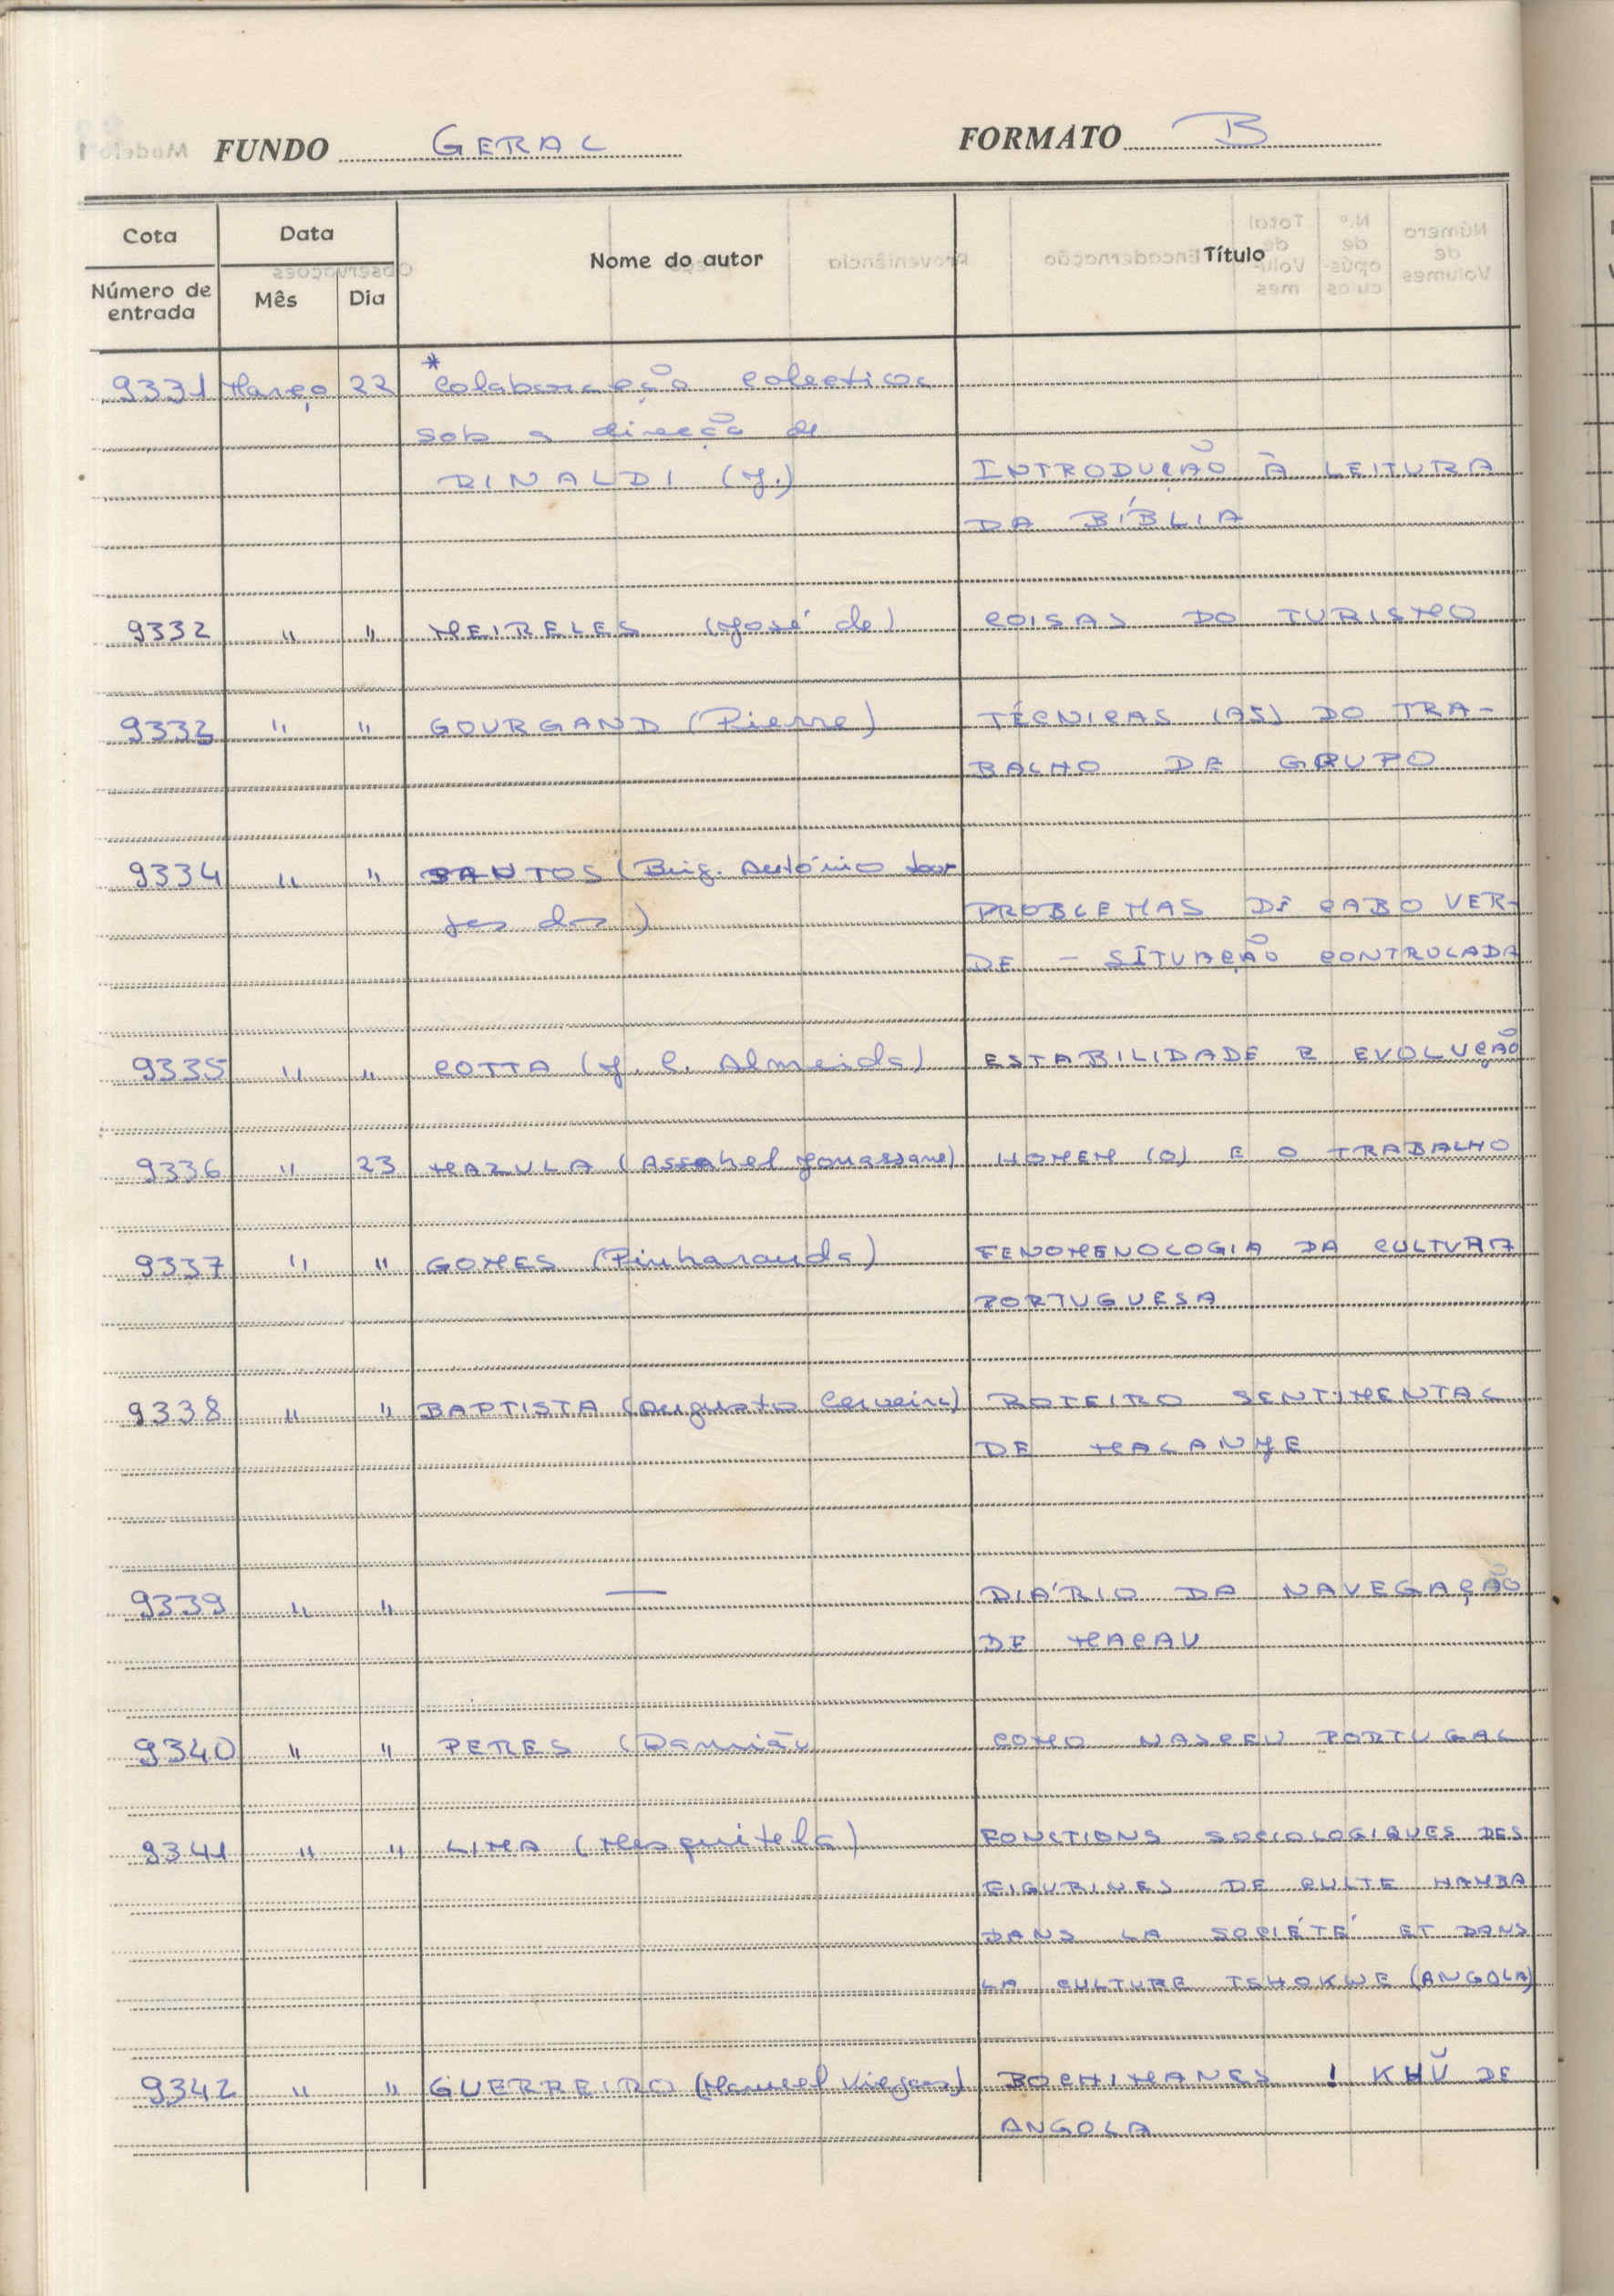 FUNDO GERAL FORMATO B
Cota Data Nome do autor Título
Número de entrada Mês Dia
9331 Março 22 *Colaboração colectiva
sob a direcção de
RINALDI (J.) INTRODUÇÃO À LEITURA
DA BÍBLIA
9332 " " MEIRELES (José de) COISAS DO TURISMO
9333 " " GOURGAND (Pierre) TÉCNICAS (AS) DO TRA-
BALHO DE GRUPO
9334 " " SANTOS (Brig. António Lo-
pes dos) PROBLEMAS DE CABO VER-
DE - SITUAÇÃO CONTROLADA
9335 " " COTTA (J. C. Almeida) ESTABILIDADE E EVOLUÇÃO
9336 " 23 MAZULA (Assahel Jonassane) HOMEM (O) E O TRABALHO
9337 " " GOMES (Pinharanda) FENOMENOLOGIA DA CULTURA
PORTUGUESA
9338 " " BAPTISTA (Augusto Cerveira) ROTEIRO SENTIMENTAL
DE MALANJE
9339 " " — DIÁRIO DA NAVEGAÇÃO
DE MACAU
9340 " " PERES (Damião COMO NASCEU PORTUGAL
9341 " " LIMA (Mesquitela) FONCTIONS SOCIOLOGIQUES DES
FIGURINES DE CULTE HAMBA
DANS LA SOCIÉTÉ ET DANS
LA CULTURE TSHOKWE (ANGOLA)
9342 " " GUERREIRO (Manuel Viegas) BOCHIMANES ! KHŨ DE
ANGOLA